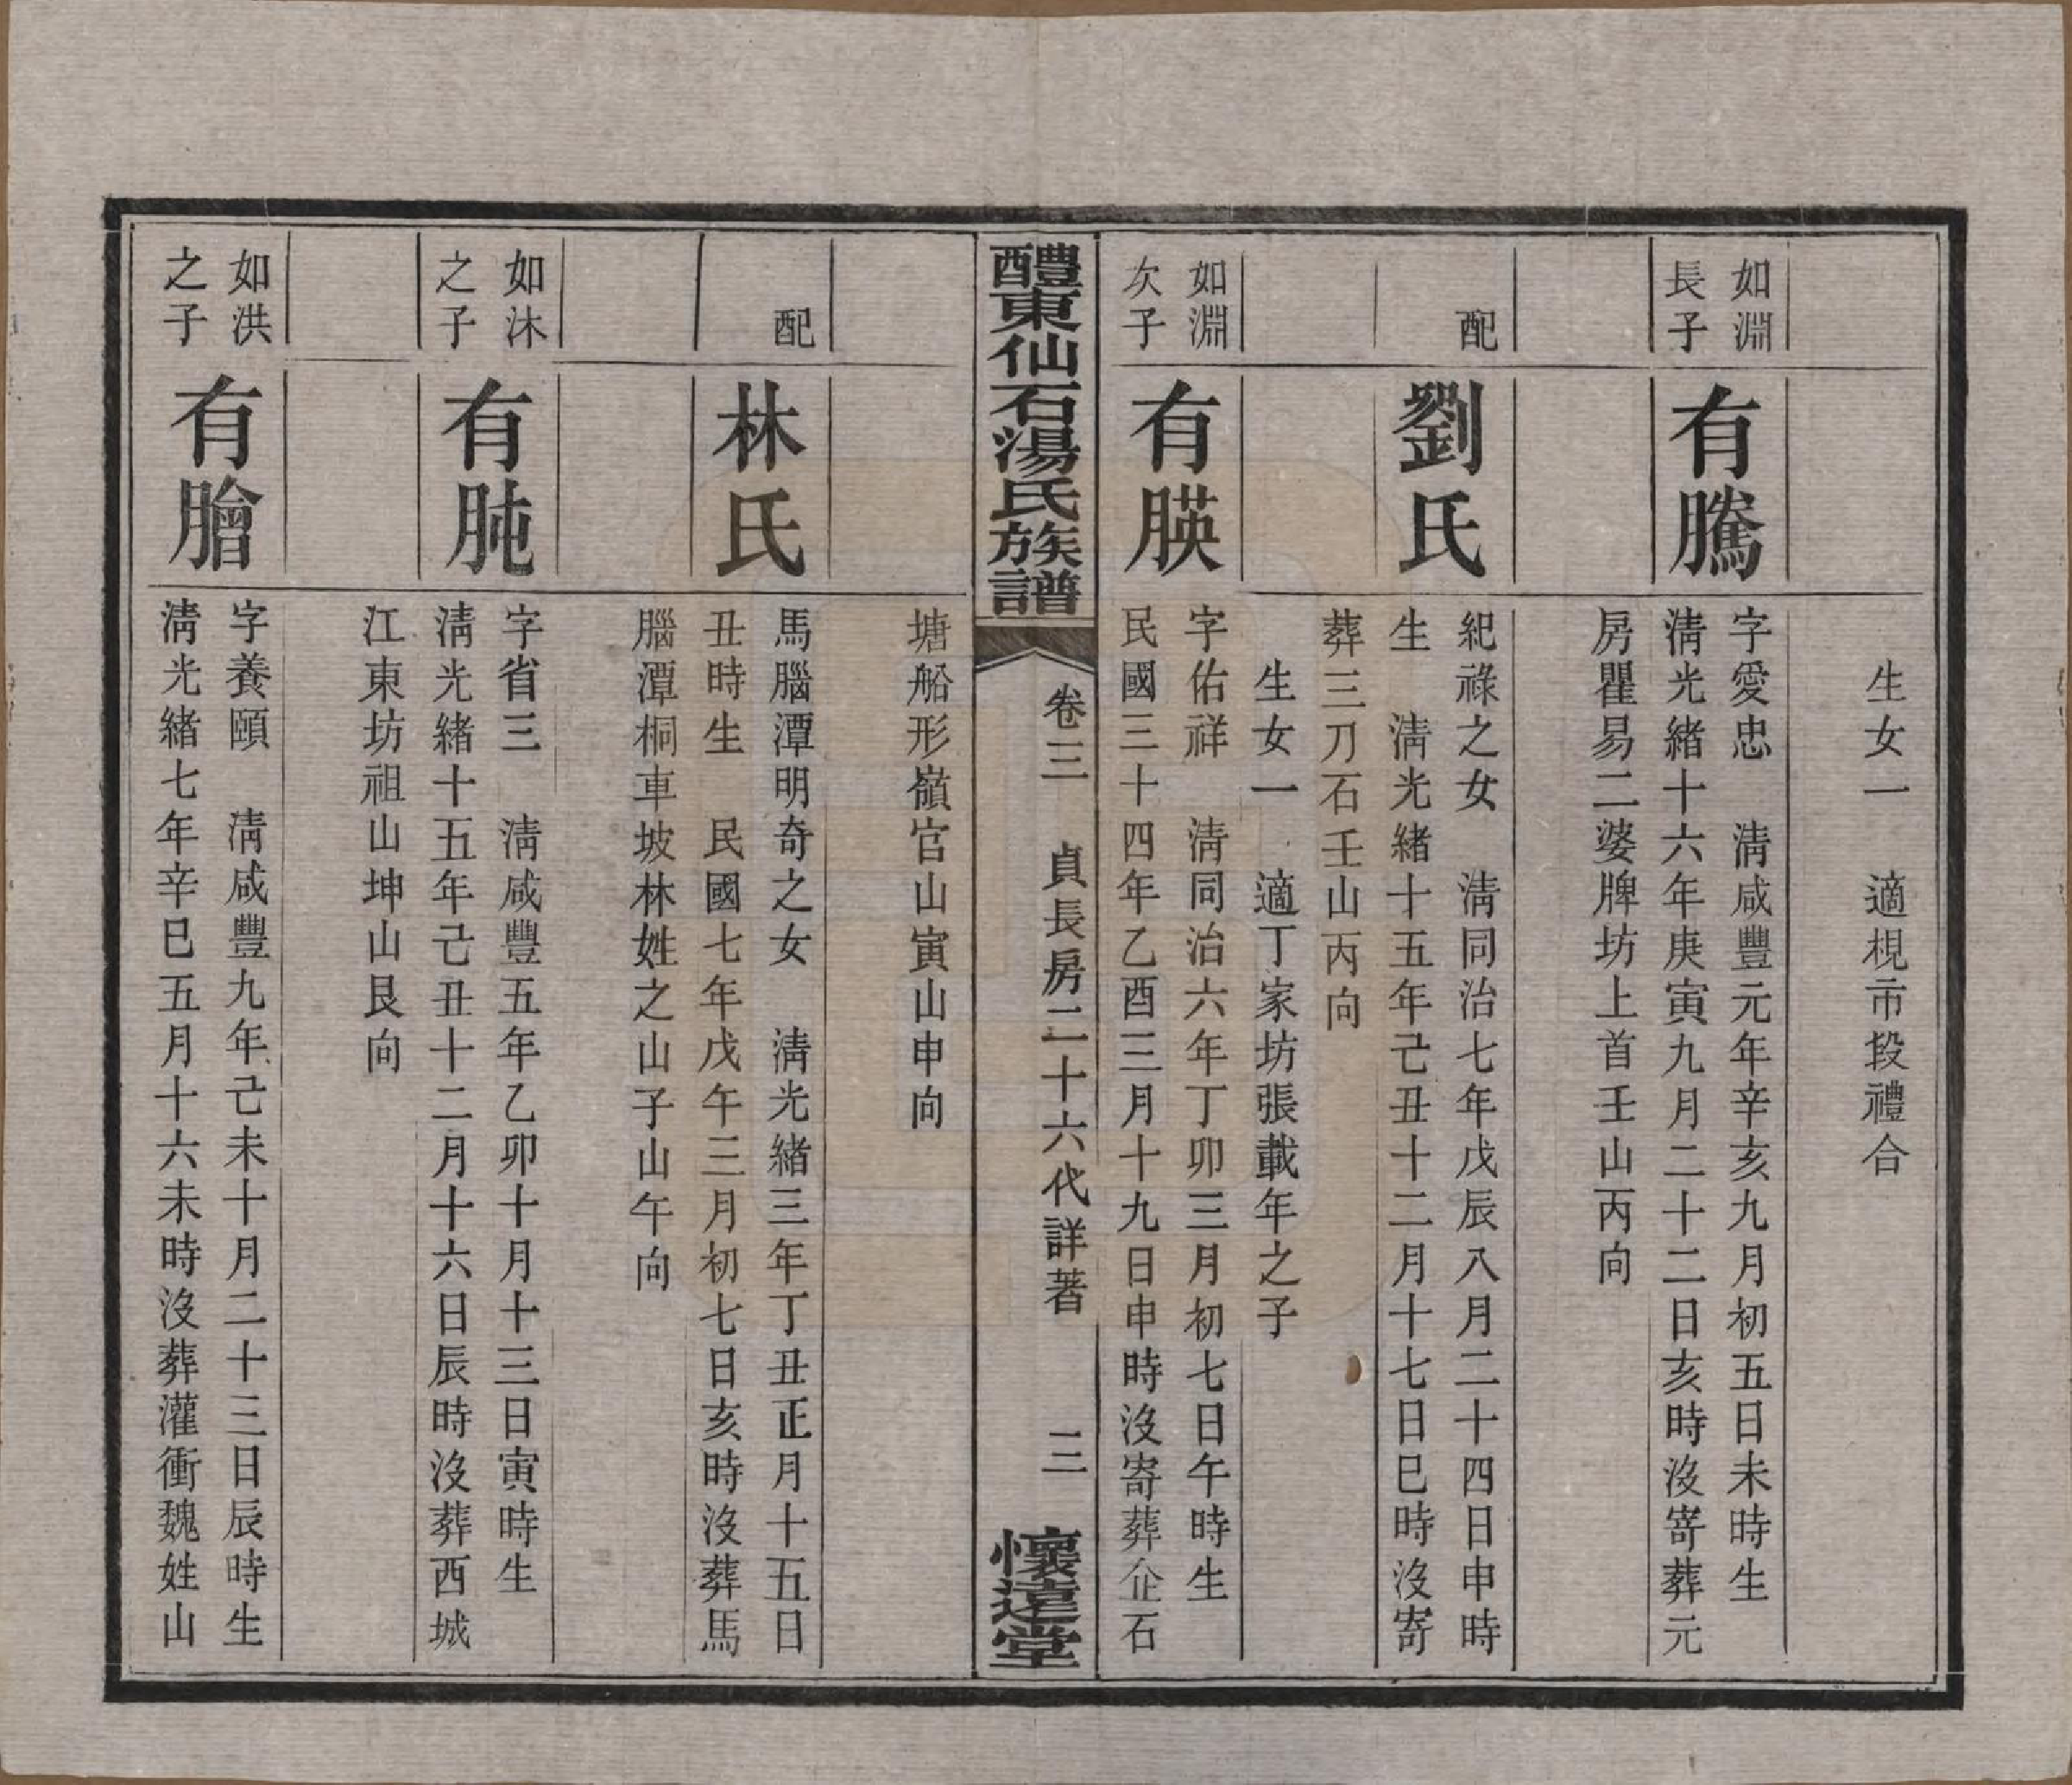 生女一　適梘市段禮合
如淵
長子
有騰
字愛忠　淸咸豐元年辛亥九月初五日未時生
淸光緖十六年庚寅九月二十二日亥時沒寄葬元
房瞿易二婆牌坊上首壬山丙向
配
劉氏
紀祿之女　淸同治七年戊辰八月二十四日申時
生　淸光緖十五年己丑十二月十七日巳時沒寄
葬三刀石壬山丙向
生女一　適丁家坊張載年之子
如淵
次子
有朠
字佑祥　淸同治六年丁卯三月初七日午時生
民國三十四年乙酉三月十九日申時沒寄葬企石
醴東仙石湯氏族譜
卷三　貞長房二十六代詳著　三
懷遠堂
塘船形嶺官山寅山申向
配
林氏
馬腦潭明奇之女　淸光緖三年丁丑正月十五日
丑時生　民國七年戊午三月初七日亥時沒葬馬
腦潭桐車坡林姓之山子山午向
如沐
之子
有肫
字省三　淸咸豐五年乙卯十月十三日寅時生
淸光緖十五年己丑十二月十六日辰時沒葬西城
江東坊祖山坤山艮向
如洪
之子
有膾
字養頤　淸咸豐九年己未十月二十三日辰時生
淸光緖七年辛巳五月十六未時沒葬灌衝魏姓山